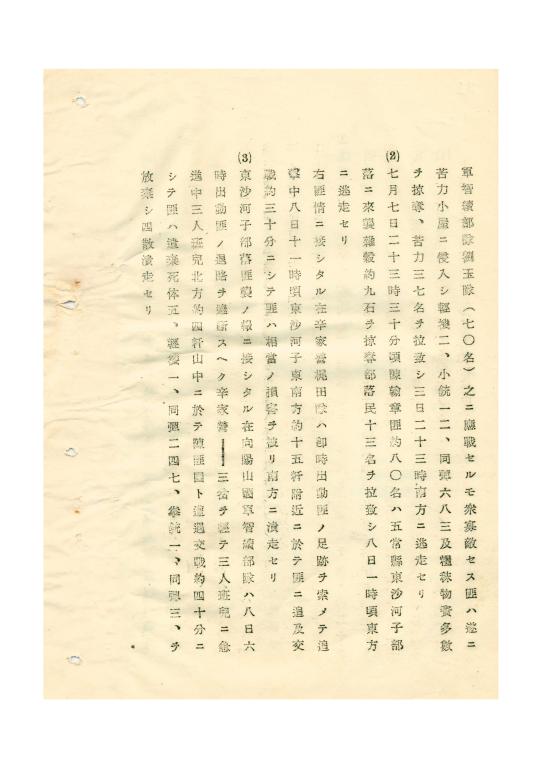 軍智續部隊劉玉隊(七〇名)之ニ應戰セルモ衆寡敵セス匪ハ遂ニ
苦力小屋ニ侵入シ輕機二、小銃一二、同彈六八三及糧秣物資多數
ヲ掠奪、苦力三七名ヲ拉致シ三日二十三時南方ニ逃走セリ
(2) 七月七日二十三時三十分頃陳翰章匪約八〇名ハ五常縣東沙河子部
落ニ來襲雜穀約九石ヲ掠奪部落民十三名ヲ拉致シ八日一時頃東方
ニ逃走セリ
右匪情ニ接シタル在辛家營梶田隊ハ卽時出動匪ノ足跡ヲ索メテ追
擊中八日十一時頃東沙河子東南方約十五粁附近ニ於テ匪ニ追及交
戰約三十分ニシテ匪ハ相當ノ損害ヲ被リ南方ニ潰走セリ
(3) 東沙河子部落匪襲ノ報ニ接シタル在向陽山國軍智續部隊ハ八日六
時出動匪ノ退路ヲ遮斷スヘク辛家營——三岔ヲ經テ三人班兒ニ急
進中三人班兒北方約四粁山中ニ於テ陳匪團ト遭遇交戰約四十分ニ
シテ匪ハ遺棄死体五、輕機一、同彈二四七、拳銃一、同彈三、ヲ
放棄シ四散潰走セリ